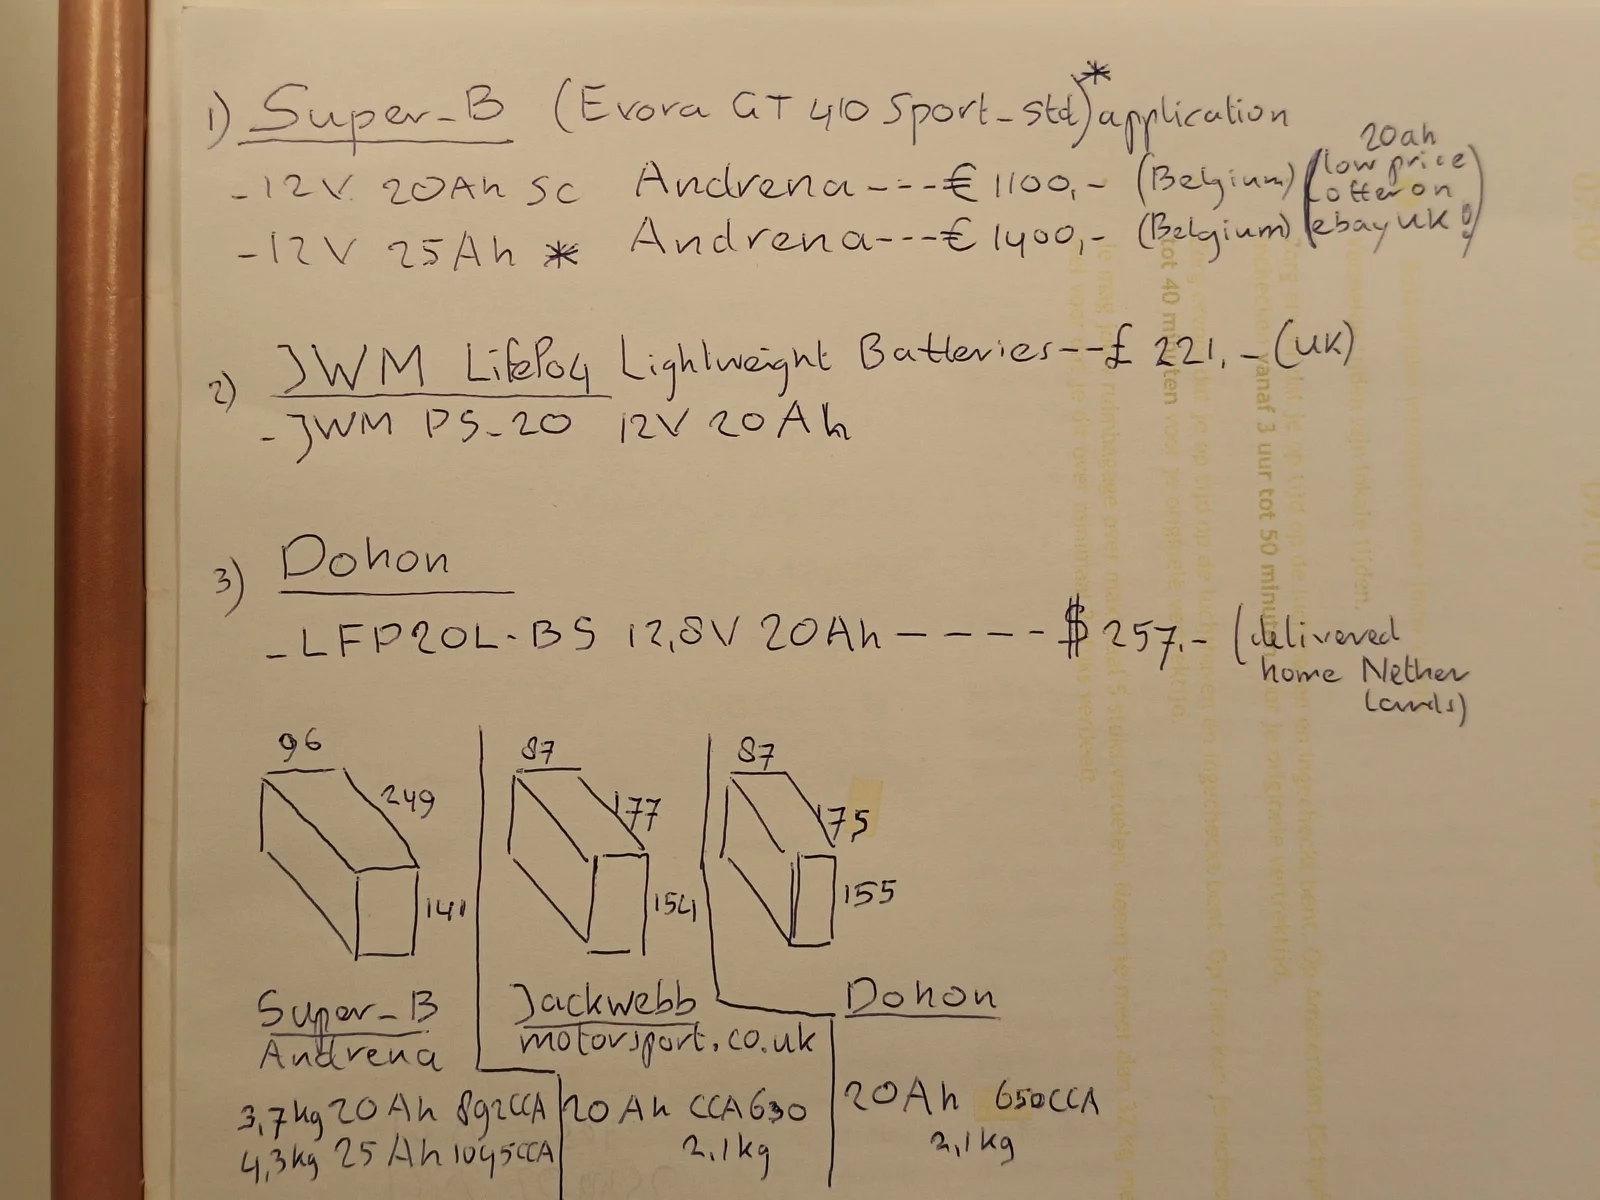 1) Super-B (Evora GT 410 Sport-std)* application
-12V 20Ah SC Andrena---€ 1100,- (Belgium)
-12V 25Ah * Andrena---€ 1400,- (Belgium)
(20ah
low price
offer on
ebay UK!)
2) JWM LifePo4 Lightweight Batteries--£ 221,- (UK)
-JWM PS-20 12V 20Ah
3) Dohon
-LFP20L-BS 12,8V 20Ah ----- $ 257.- (delivered
home Nether
lands)
96
249
141
87
177
154
87
175
155
Super-B
Andrena
3,7kg 20Ah 892CCA
4,3kg 25Ah 1045CCA
Jackwebb
motorsport.co.uk
20Ah CCA 630
2,1kg
Dohon
20Ah 650CCA
2,1kg
vanaf 3 uur tot 50 minuten
tot 40 minuten